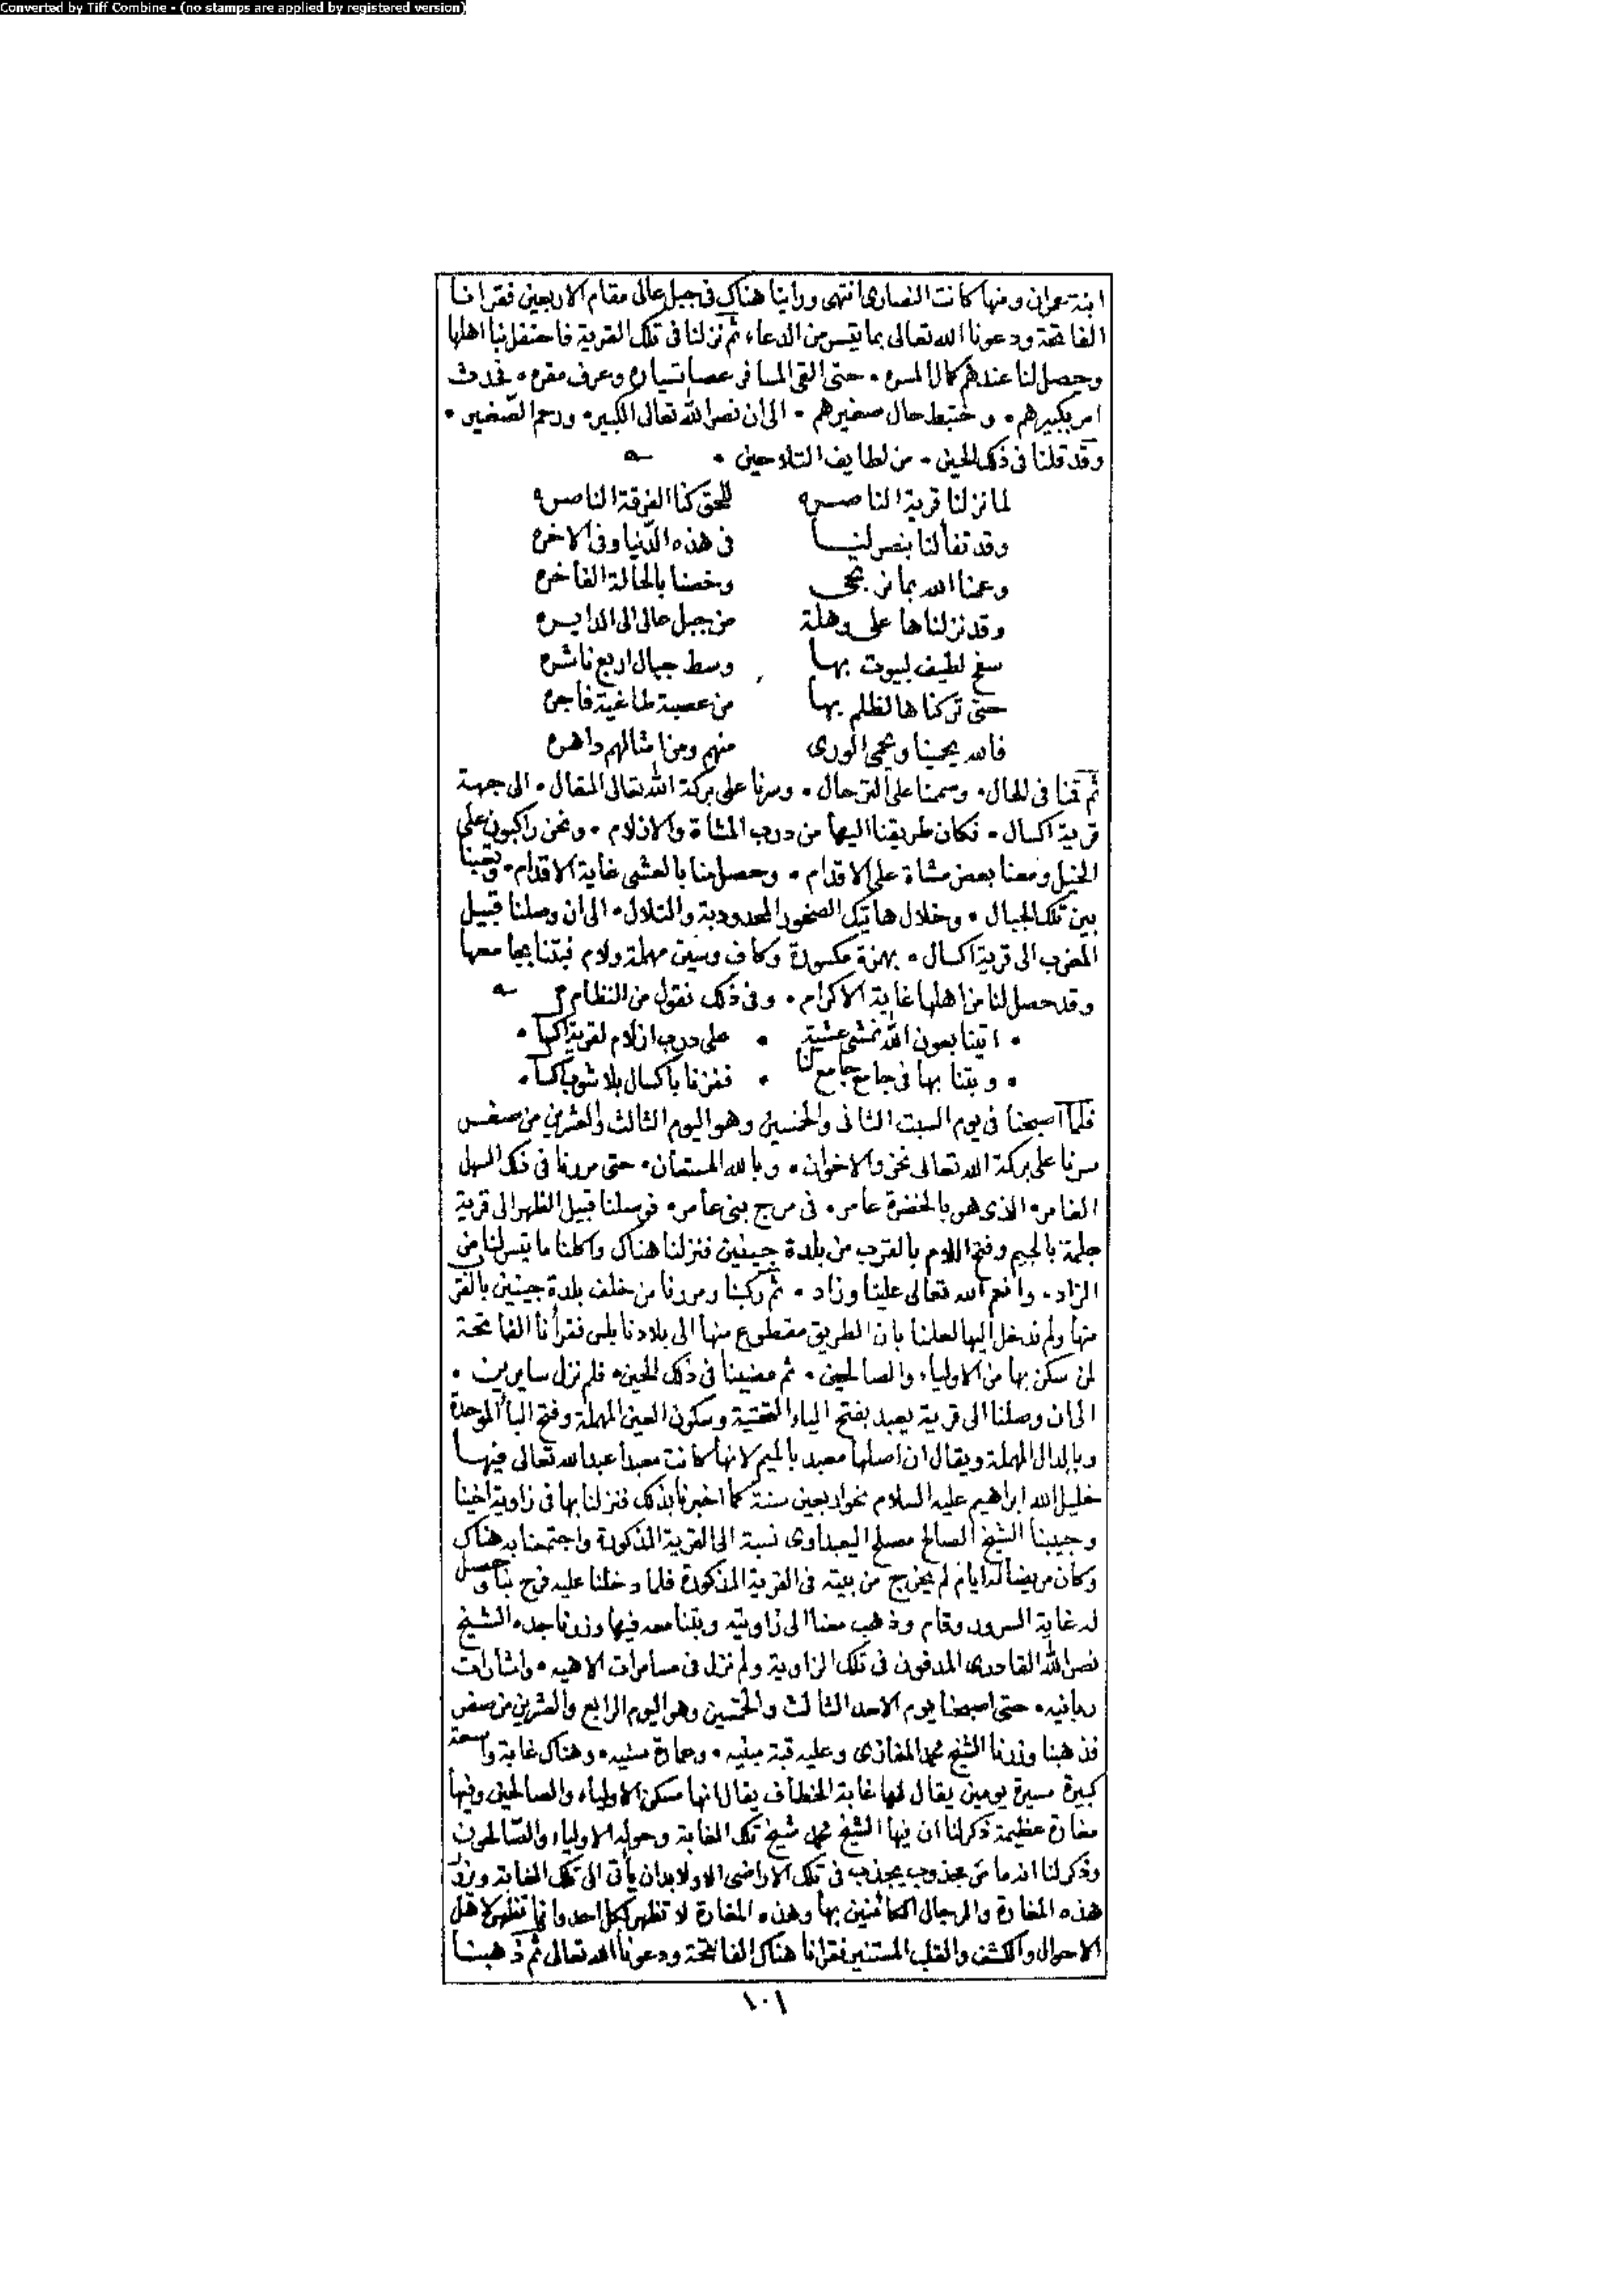 Converted by Tiff Combine - (no stamps are applied by registered version)
ابنة عمران ومنها كانت النصارى انتهى وراينا هناك فى جبل عالى مقام الاربعين فقرانا
الفاتحة ودعونا الله تعالى بما تيسر من الدعاء ثم نزلنا فى تلك القرية فاحتفل بنا اهلها
وحصل لنا عندهم كمال المسره • حتى القى المسافر عصا تسياره وعرف مقره •
امر بكبيرهم • حال صغيرهم • الى ان نصر الله تعالى الكبير • ورحم الصغير •
وقد قلنا فى ذلك الحين • من لطايف التلاحين •
لما نزلنا قرية الناصره للحق كنا الفرقة الناصره
وقد تفألنا بنصر لنا فى هذه الدنيا وفى الاخره
وعمنا الله بما نرتجى وخصنا بالحالة الفاخره
وقد نزلناها على وهلة من جبل عالى الى الدايره
سفح لطيف لبيوت بها وسط جبال اربع ناشره
حتى تركناها لظلم بها من عصبة طاغية فاجره
فالله يحمينا ويحمى الورى منهم ومن امثالهم داهره
ثم قمنا فى الحال • على الترحال • وسرنا على بركة الله تعالى المتعال • الى جهة
قرية اكسال • فكان طريقنا اليها من درب المشاة والازلام • ونحن راكبون على
الخيل ومعنا بعض مشاة على الاقدام • وحصل منا بالمشى غاية الاقدام •
بين تلك الجبال • وخلال هاتيك الصخور المحدودبة والتلال • الى ان وصلنا قبيل
المغرب الى قرية اكسال • بهمزة مكسورة وكاف وسين مهملة ولام فبتنا بجامعها
وقد حصل لنا من اهلها غاية الاكرام • وفى ذلك نقول من النظام
• اتينا بعون الله نمشى عشية • على درب ازلام لقرية اكسال •
• وبتنا بها فى جامع جامع لنا • ففزنا باكسال بلا شوب اكسال •
فلما اصبحنا فى يوم السبت الثانى والخمسين وهو اليوم الثالث والعشرين من صفر
سرنا على بركة الله تعالى نحن والاخوان • وبالله المستعان • حتى مررنا فى ذلك السهل
الغامر • الذى هو بالخضرة عامر • فى مرج بنى عامر • فوصلنا قبيل الظهر الى قرية
جلمة بالجيم وفتح اللام بالقرب من بلدة جينين فنزلنا هناك واكلنا ما تيسر لنا من
الزاد • وانعم الله تعالى علينا وزاد • ثم ركبنا ومررنا من خلف بلدة جينين بالقرب
منها ولم ندخل اليها لعلمنا بان الطريق مقطوع منها الى بلاد نابلس فقرأنا الفاتحة
لمن سكن بها من الاولياء والصالحين • ثم مضينا فى ذلك الحين • فلم نزل سايرين •
الى ان وصلنا الى قرية يعبد بفتح الياء التحتية وسكون العين المهملة وفتح البأ الموحدة
وبالدال المهملة ويقال ان اصلها معبد بالميم لانها كانت معبدا عبد الله تعالى فيها
خليل الله ابراهيم عليه السلام نحو اربعين سنة كما اخبرنا بذلك فنزلنا بها فى زاوية اخينا
وحبيبنا الشيخ الصالح مصلح اليعبداوى نسبة الى القرية المذكورة واجتمعنا به هناك
وكان مريضا له ايام لم يخرج من بيته فى القرية المذكورة فلما دخلنا عليه فرح بنا وحصل
له غاية السرور وقام وذهب معنا الى زاويته وبتنا معه فيها وزرنا جده الشيخ
نصر الله القادرى المدفون فى تلك الزاوية ولم نزل فى مسامرات الاهيه • واشارات
ربانيه • حتى اصبحنا يوم الاحد الثالث والخمسين وهو اليوم الرابع والعشرين من صفر
فذهبنا وزرنا الشيخ محمد المغازى وعليه قبة مبنيه • وعمارة سنيه • وهناك غابة واسعة
كبيرة مسيرة يومين يقال لها غابة الخطاف يقال انها مسكن الاولياء والصالحين وفيها
مغارة عظيمة ذكر لنا ان فيها الشيخ محمد شيخ تلك الغابة وحوله الاولياء والصالحون
وذكر لنا انه ما من مجذوب يجذب فى تلك الاراضى الا ولا بد ان يأتى الى تلك الغابة ويزور
هذه المغارة والرجال الكائنين بها وهذه المغارة لا تظهر لكل احد وانما تظهر لاهل
الاحوال والكشف والقلب المستنير فقرانا هناك الفاتحة ودعونا الله تعالى ثم ذهبنا
١٠١